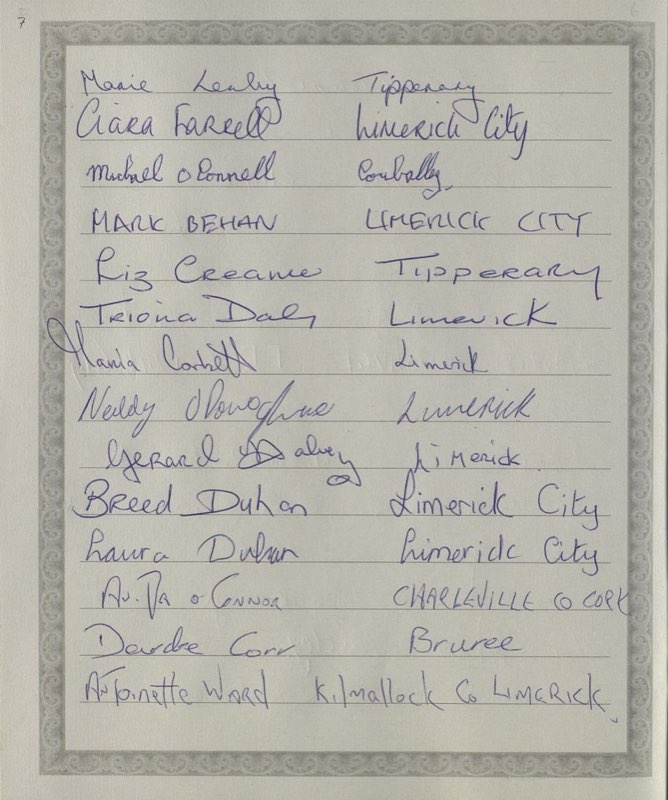 7
Marie Leahy Tipperary
Ciara Farrell Limerick City
Michael O Connell Corbally
MARK BEHAN LIMERICK CITY
Liz Creame Tipperary
Triona Daly Limerick
Maria Corbett Limerick
Neddy O'Donoghue Limerick
Gerard Limerick
Breed Duhan Limerick City
Laura Duhan Limerick City
O'Connor CHARLEVILLE CO CORK
Deirdre Corr Bruree
Antoinette Ward Kilmallock Co Limerick